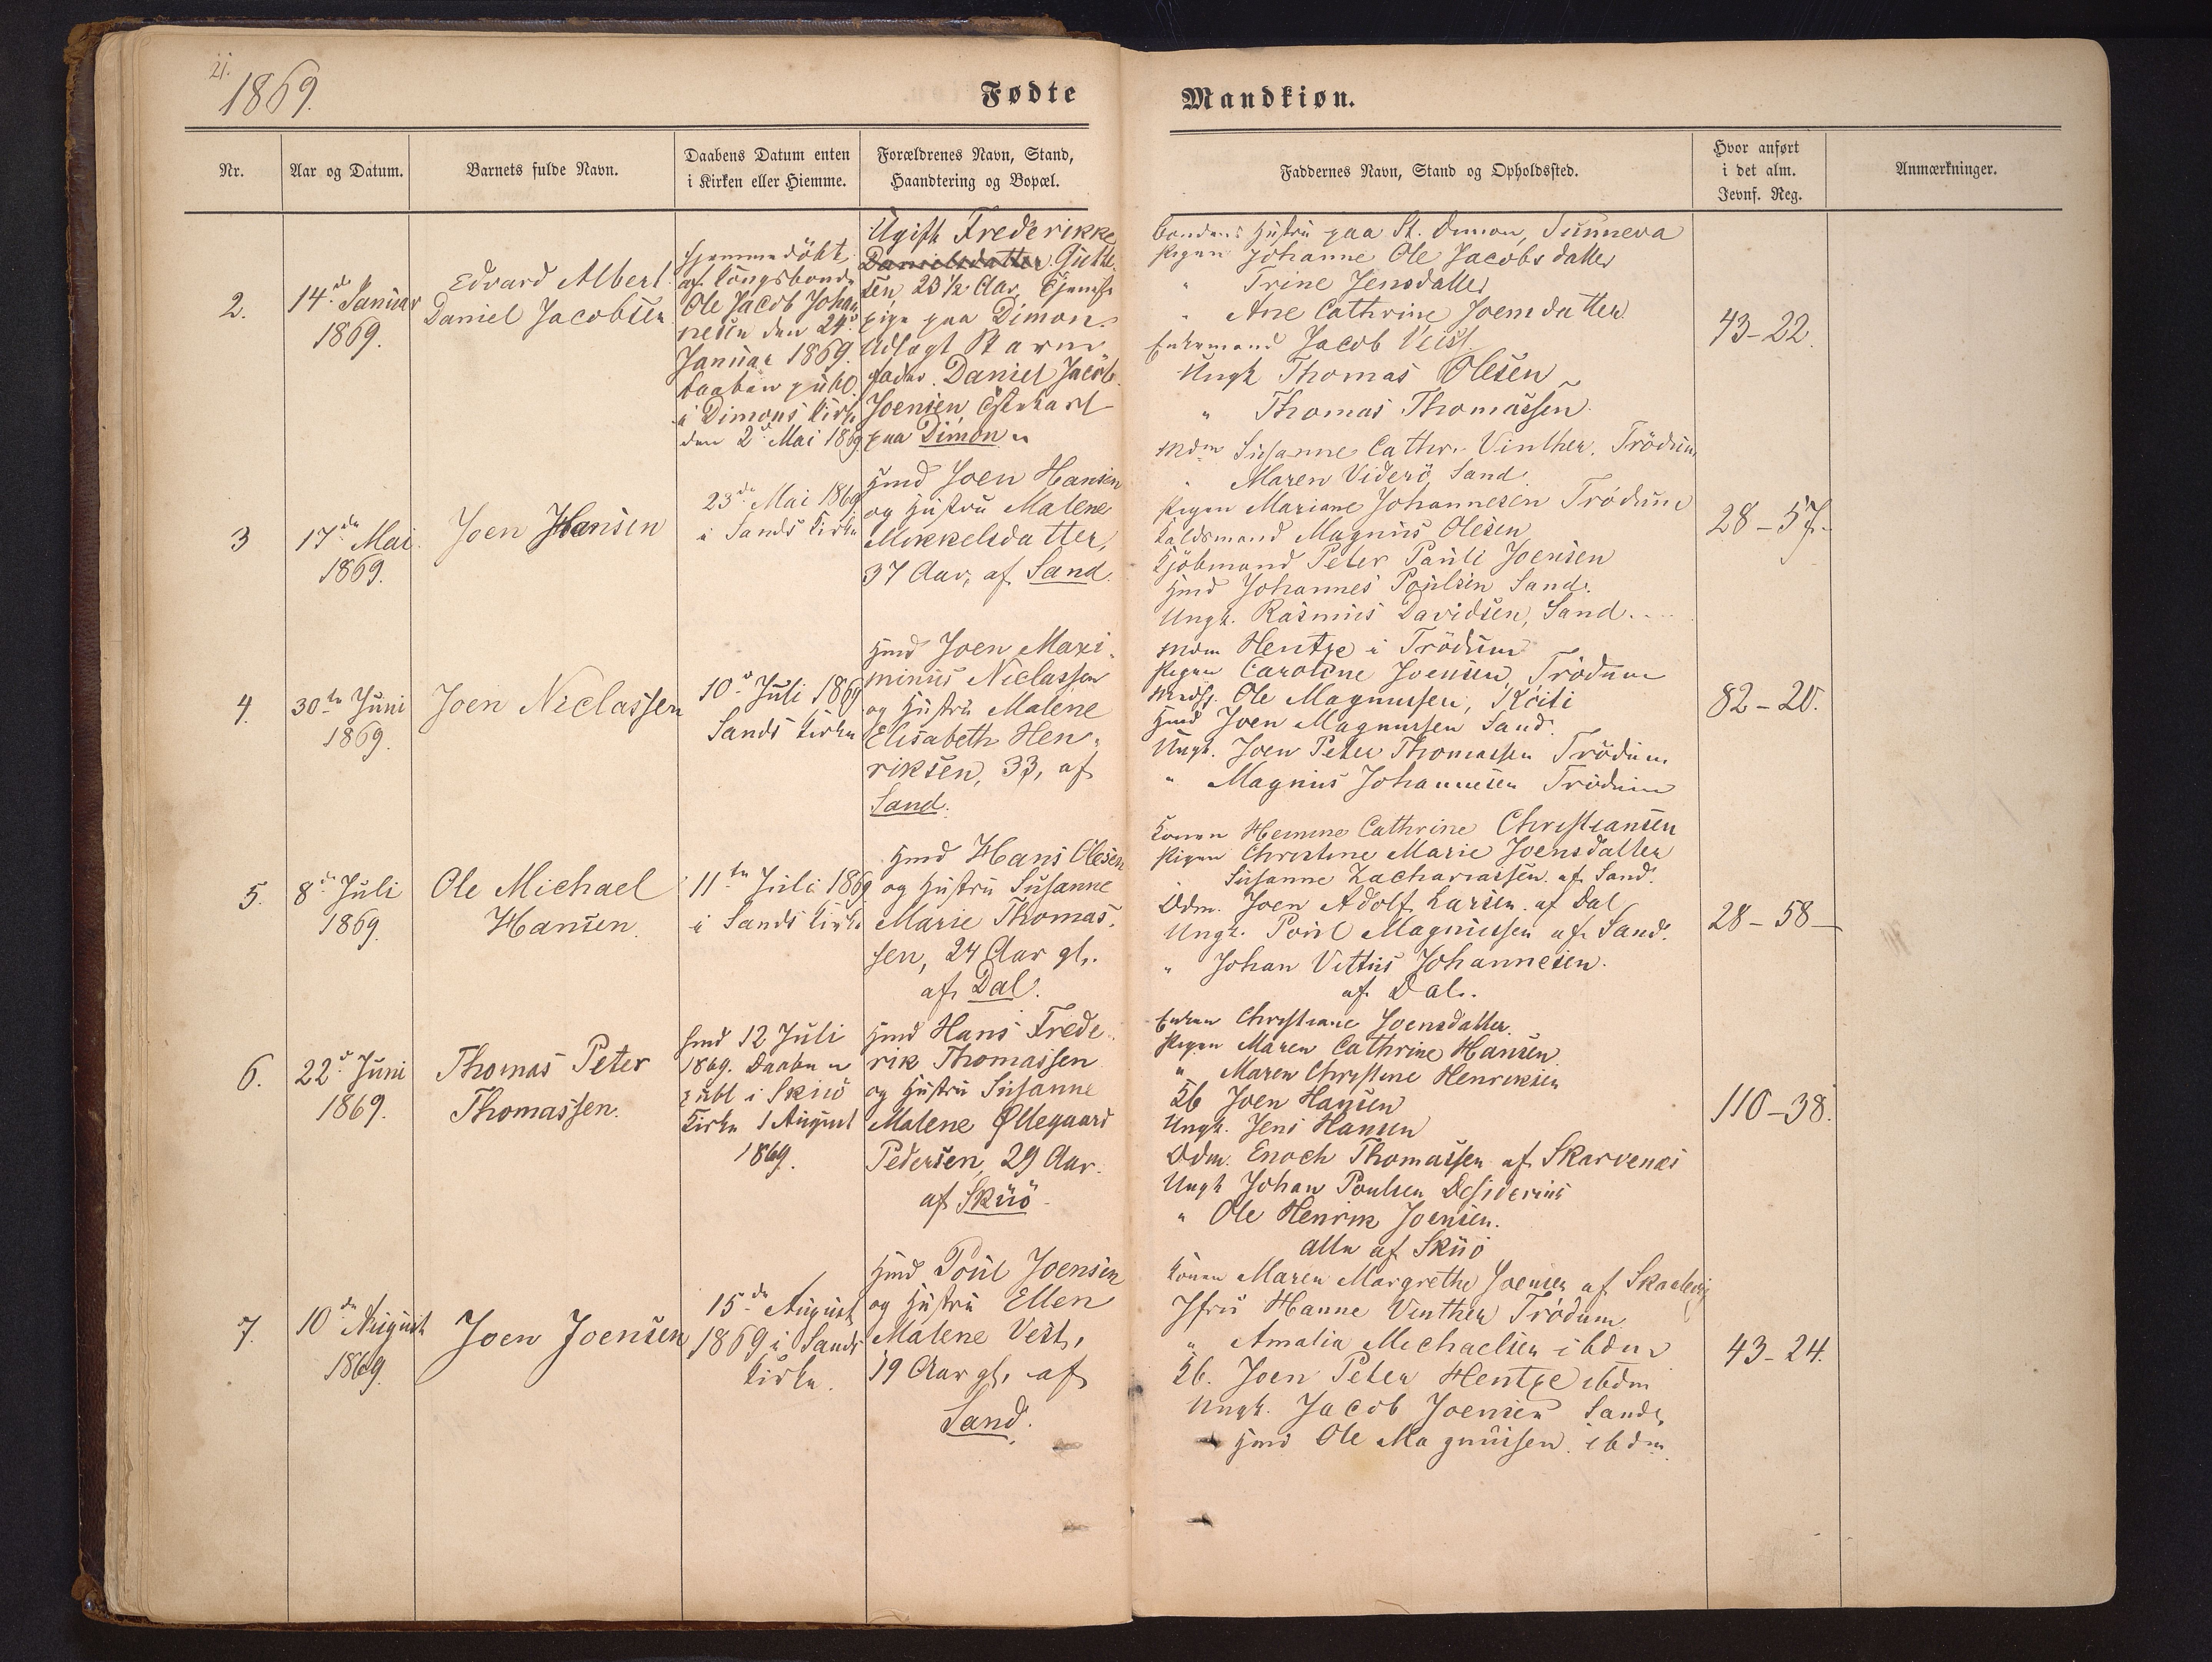 21.
1869.
Fødte
Mandkiøn.
Nr.
Aar og Datum.
Barnets fulde Navn.
Daabens Datum enten
i Kirken eller Hiemme.
Forældrenes Navn, Stand,
Haandtering og Bopæl.
Faddernes Navn, Stand og Opholdssted.
Hvor anført
i det alm.
Jevnf. Reg.
Anmærkninger.
2.
14d Januar
1869.
Edvard Albert
Daniel Jacobsen
Hjemmedöbt
af Kongsbonde
Ole Jacob Johan
nesen den 24d
Januar 1869.
Daaben publ.
i Dimons Kirke
den 2d Mai 1869
Ugift Frederikke
Danielsdatter
sen, 23 1/2 Aar, Tjeneste
pige paa Dimon.
Udlagt Barne
fader. Daniel Jacob
Joensen
paa Dimon
Bondens Hustru paa St. Dimon, Sunneva
Pigen Johanne Ole Jacobsdatter
" Trine Jensdatter
" Ane Cathrine Joensdatter
Enkemand Jacob Veist
Ungk Thomas Olesen
" Thomas Thomassen
43-22.
3
17de Mai
1869.
Joen Hansen
23de Mai 1869
i Sands Kirke
Hmd Joen Hansen
og Hustru Malene
Mikkelsdatter,
37 Aar, af Sand.
Mdm Susanne Cathr. Vinther. Trödum
" Maren Viderö, Sand
Pigen Mariane Johannesen Trödum
Magnus Olesen
Kjöbmand Peter Pauli Joensen
Hmd Johannes Poulsen Sand.
Ungk. Rasmus Davidsen, Sand.
28-57.
4.
30te Juni
1869.
Joen Niclassen
10d Juli 1869
Sands Kirke
Hmd Joen Maxi-
minus Niclassen
og Hustru Malene
Elisabeth Hen-
riksen, 33, af
Sand.
Mdm Hentze i Trödum
Pigen Caroline Joensen, Trödum
Ole Magnussen,
Hmd Joen Magnussen Sand.
Ungk. Joen Peter Thomassen Trödum
" Magnus Johannesen Trödum
82-20.
5.
8de Juli
1869.
Ole Michael
Hansen.
11te Juli 1869
i Sands Kirke
Hmd Hans Olesen
og Hustru Susanne
Marie Thomas-
sen, 24 Aar gl.
af Dal.
Konen Hemme Cathrine Christiansen
Pigen Christine Marie Joensdatter
" Susanne Zachariassen af Sand.
Odm. Joen Adolf Larsen af Dal
Ungk. Poul Magnussen af Sand.
" Johan Vittus Johannesen.
af Dal.
28-58-
6.
22d Juni
1869.
Thomas Peter
Thomassen.
Hmd 12 Juli
1869. Daaben
publ i Skuö
Kirke 1 August
1869.
Hmd Hans Frede-
rik Thomassen
og Hustru Susanne
Malene Øllegaard
Pedersen, 29 Aar.
af Skuö
Enken Christiane Joensdatter.
Pigen Maren Cathrine Hansen
" Maren Christine Henriksen
Kb Joen Hansen
Ungk. Jens Hansen
Odm. Enoch Thomassen af Skarvenæs
Ungk Johan Poulsen Desiderius
" Ole Henrik Joensen.
alle af Skuö
110-38.
7.
10de August
1869
Joen Joensen
15de August
1869 i Sands
Kirke.
Hmd Poul Joensen
og Hustru Ellen
Malene Vest,
19 Aar gl. af
Sand.
Konen Maren Margrethe Joensen af Skaalevig
Jfru Hanne Vinther Trödum
" Amalia Michaelsen ibdm
Kb. Joen Peter Hentze ibdm
Ungk. Jacob Joensen Sand,
Hmd Ole Magnussen ibdm
43-24.